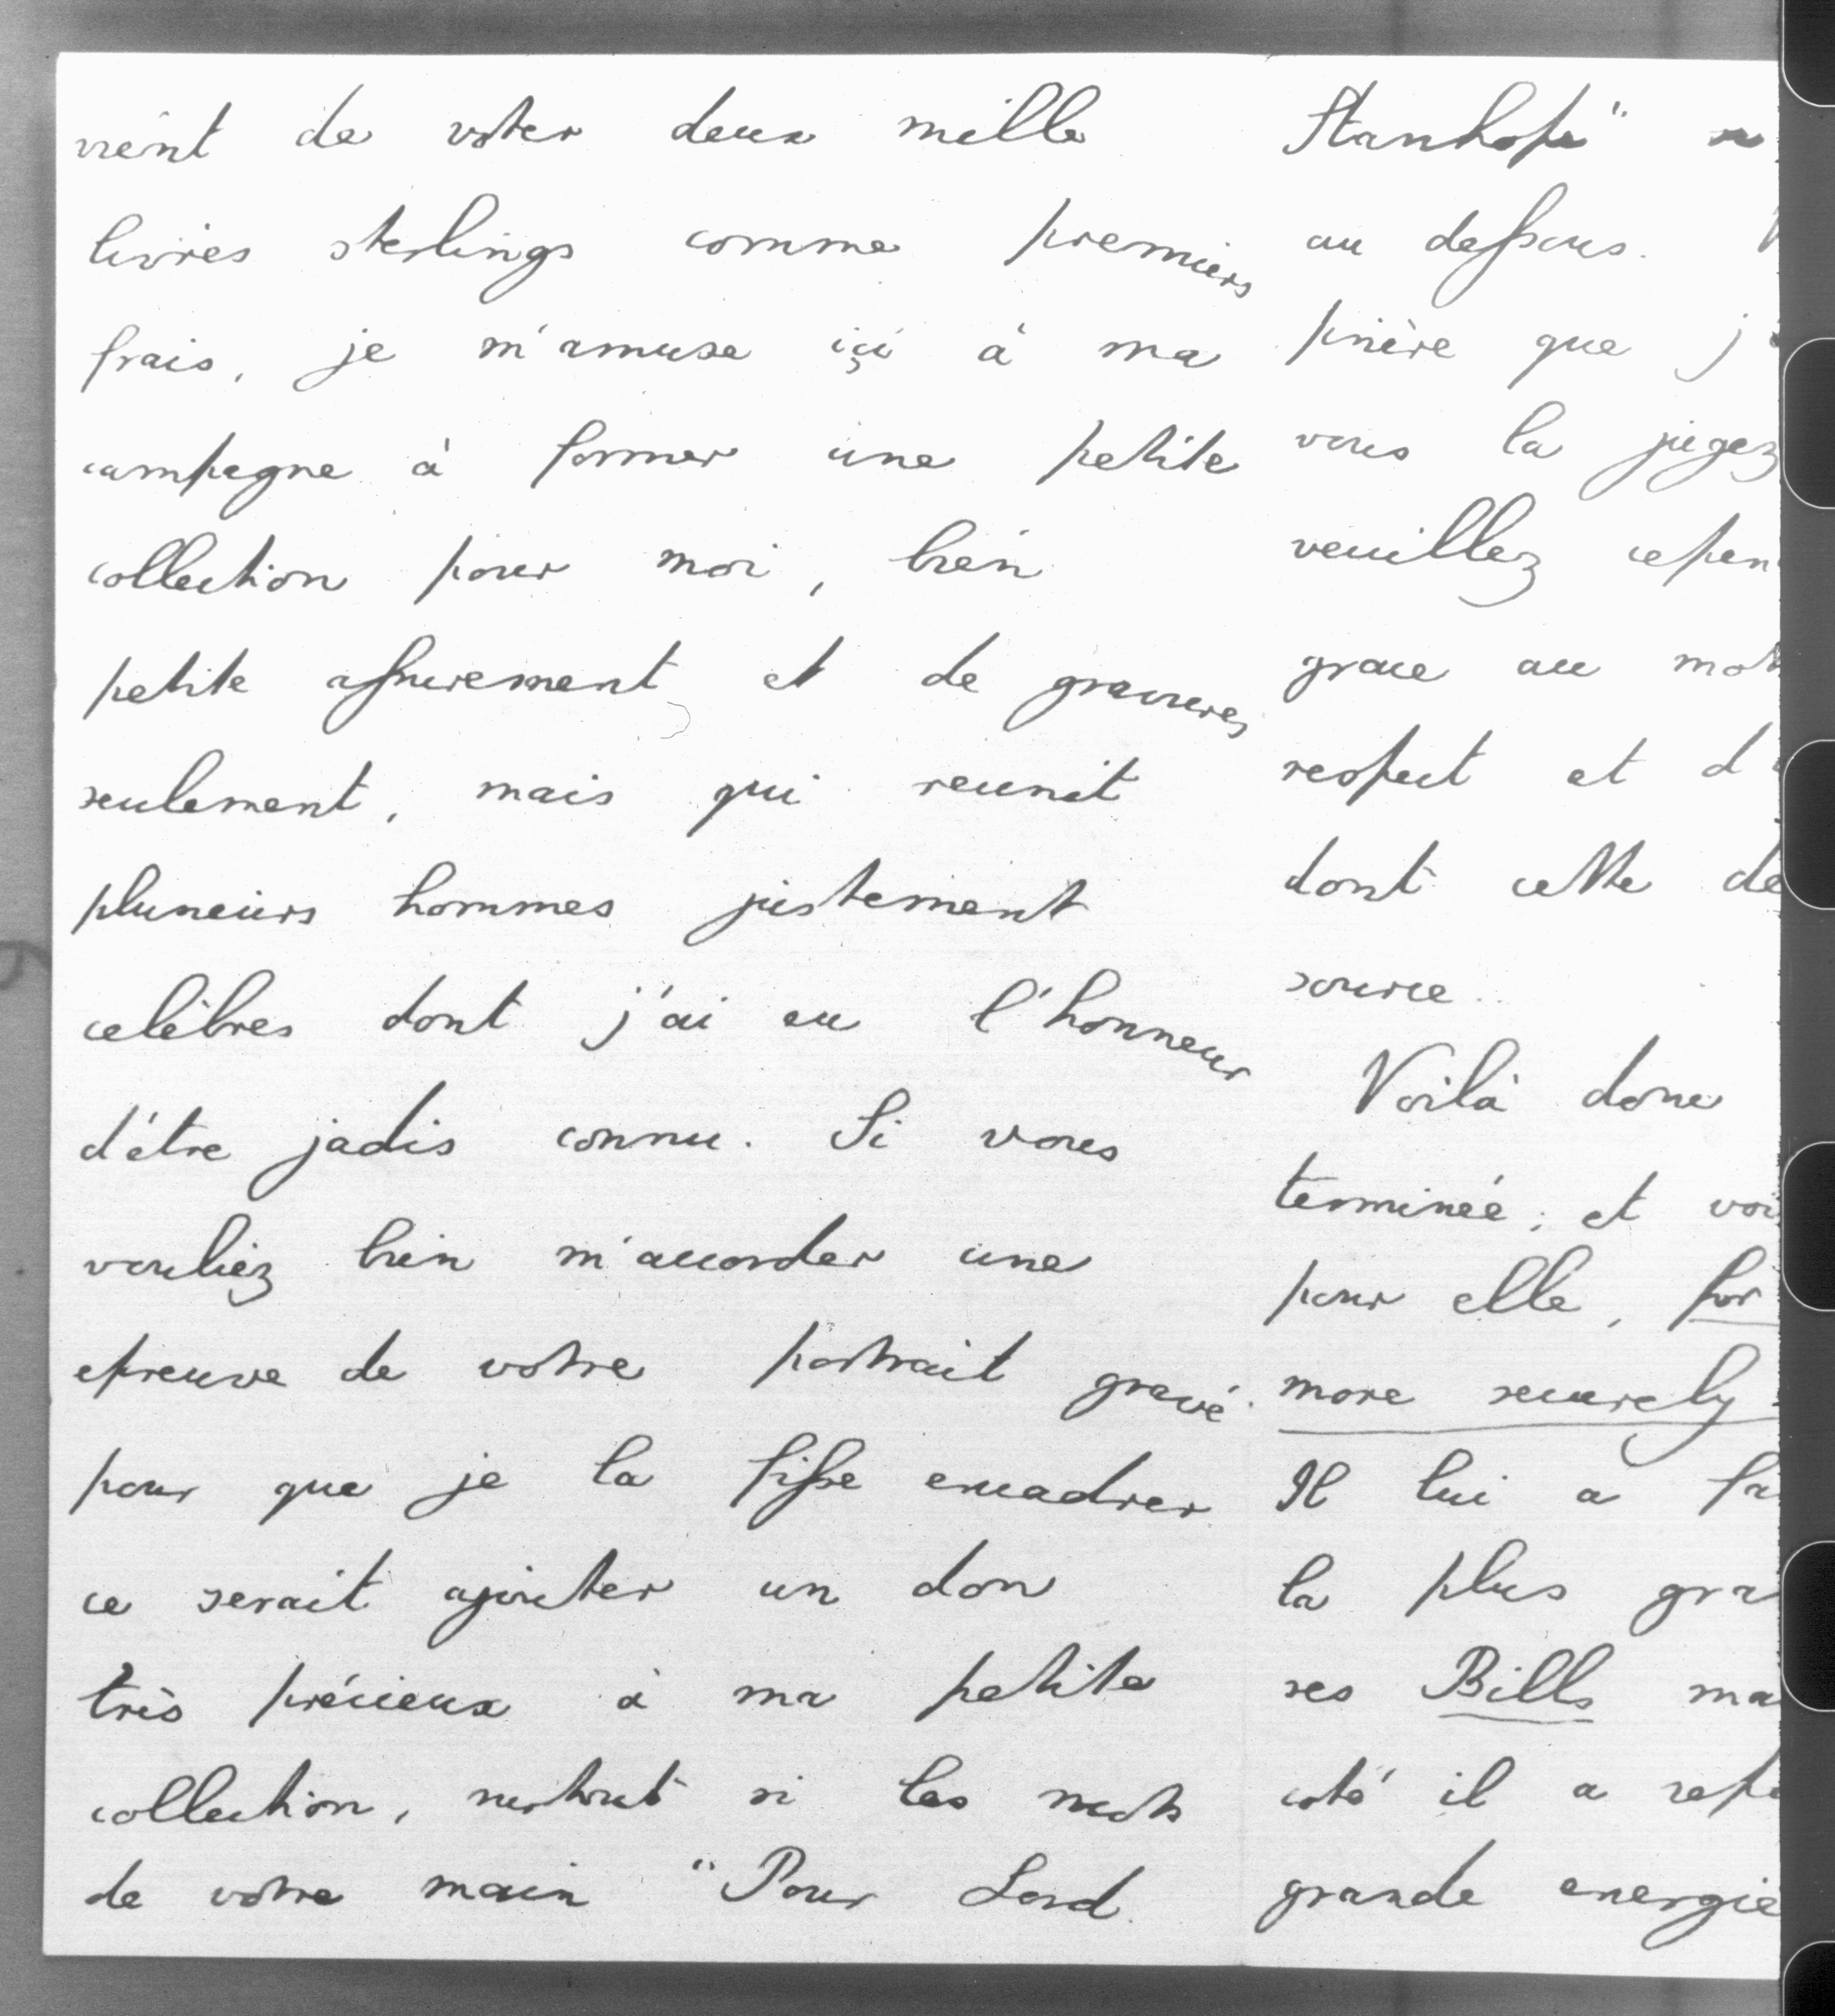 vient de voter deux mille
livres sterlings comme premiers
frais, je m'amuse içi à ma
campagne à former une petite
collection pour moi, bien
petite assurement et de gravures
seulement, mais qui reunit
plusieurs hommes justement
celèbres dont j'ai eu l'honneur
d'être jadis connu. Si vous
vouliez bien m'accorder une
epreuve de votre portrait gravé
pour que je la fisse encadrer
ce serait ajouter un don
très précieux à ma petite
collection, surtout si les mots
de votre main "Pour Lord
Stanhope"
au dessous.
prière que j
vous la jugez
veuillez cepen
grace au mot
respect et d
dont cette de
source.
Voilà donc
terminée; et voi
pour elle, for
more securely
Il lui a fa
la plus gra
ses Bills ma
coté il a repo
grande energie